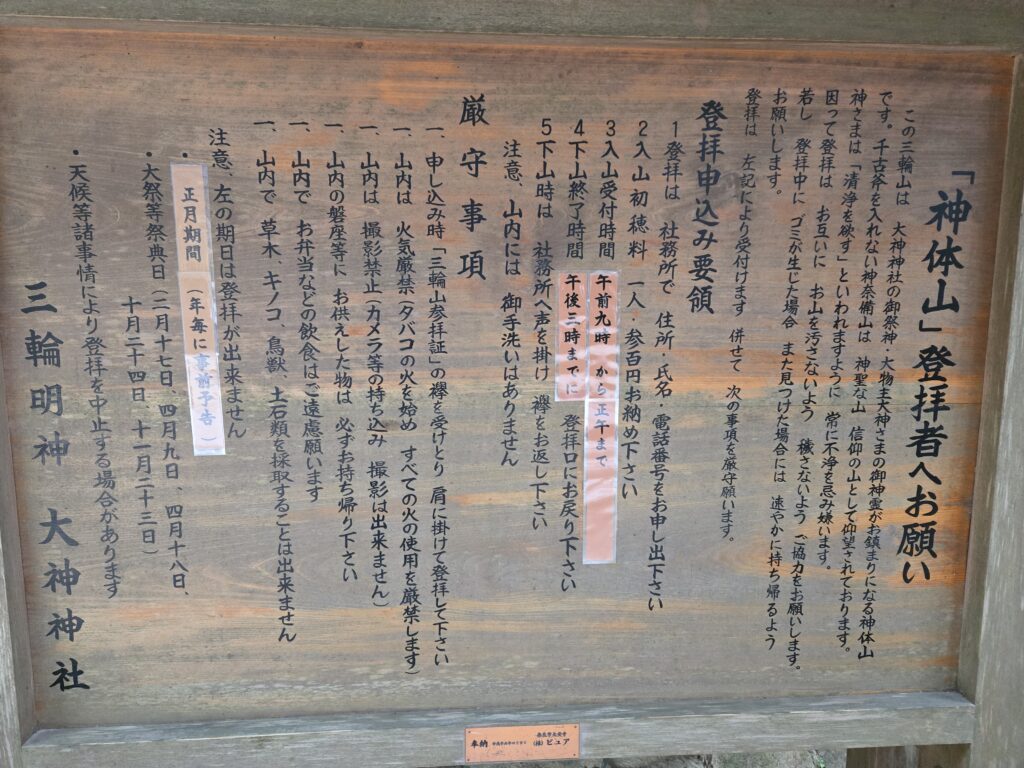 「神体山」登拝者へお願い
この三輪山は 大神神社の御祭神・大物主大神さまの御神霊がお鎮まりになる神体山
です。千古斧を入れない神奈備山は 神聖な山 信仰の山として仰望されております。
神さまは「清浄を欲す」といわれますように 常に不浄を忌み嫌います。
因って登拝は お互いに お山を汚さないよう 穢さないよう ご協力をお願いします。
若し 登拝中に ゴミが生じた場合 また見つけた場合には 速やかに持ち帰るよう
お願いします。
登拝は 左記により受付けます 併せて 次の事項を厳守願います。
登拝申込み要領
1登拝は 社務所で 住所・氏名・電話番号をお申し出下さい
2入山初穂料 一人・参百円お納め下さい
3入山受付時間 午前九時 から 正午まで
4下山終了時間 午後三時までに 登拝口にお戻り下さい
5下山時は 社務所へ声を掛け 襷をお返し下さい
注意、山内には 御手洗いはありません
厳守事項
一、申し込み時「三輪山参拝証」の襷を受けとり 肩に掛けて登拝して下さい
一、山内は 火気厳禁(タバコの火を始め すべての火の使用を厳禁します)
一、山内は 撮影禁止(カメラ等の持ち込み 撮影は出来ません)
一、山内の磐座等に お供えした物は 必ずお持ち帰り下さい
一、山内で お弁当などの飲食はご遠慮願います
一、山内で 草木、キノコ、鳥獣、土石類を採取することは出来ません
注意、左の期日は登拝が出来ません
・正月期間 (年毎に事前予告)
・大祭等祭典日(二月十七日、四月九日 四月十八日、
十月二十四日、十一月二十三日)
・天候等諸事情により登拝を中止する場合があります
三輪明神 大神神社
奉納
(株)ピュア